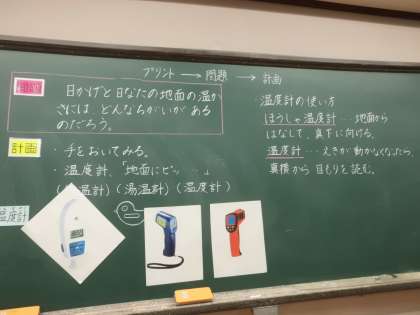 プリント → 問題 → 計画
問題
日かげと日なたの地面の温か
さには、どんなちがいがある
のだろう。
計画
・手をおいてみる。
・温度計、「地面にピッ…」
温計)(湯温計)(温度計)
温度計
・温度計の使い方
ほうしゃ温度計…地面から
はなして、真下に向ける。
温度計…えきが動かなくなったら、
真横から目もりを読む。